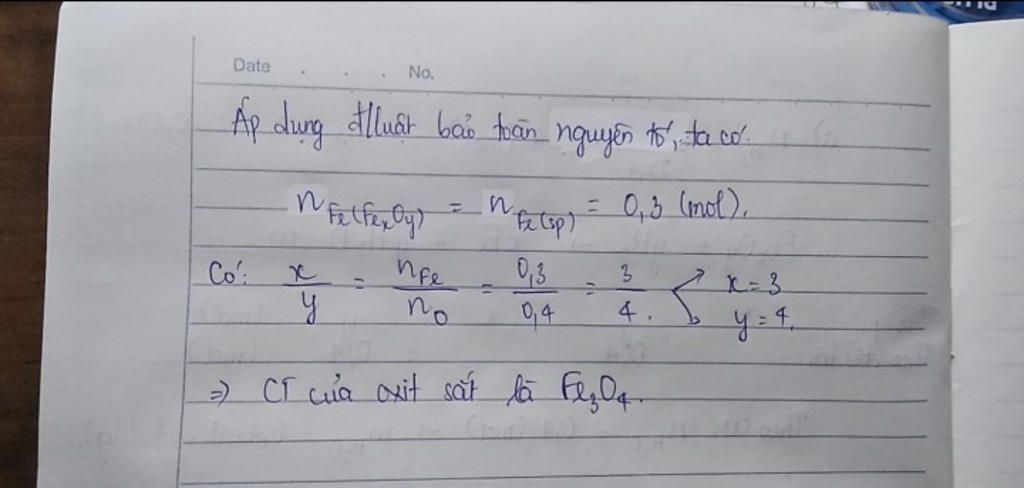 Date . . . No.
Áp dụng đlluật bảo toàn nguyên tố, ta có:
n Fe(FexOy) = n Fe(sp) = 0,3 (mol).
Có: x/y = nFe/nO = 0,3/0,4 = 3/4. x = 3
y = 4.
=> CT của oxit sắt là Fe3O4.